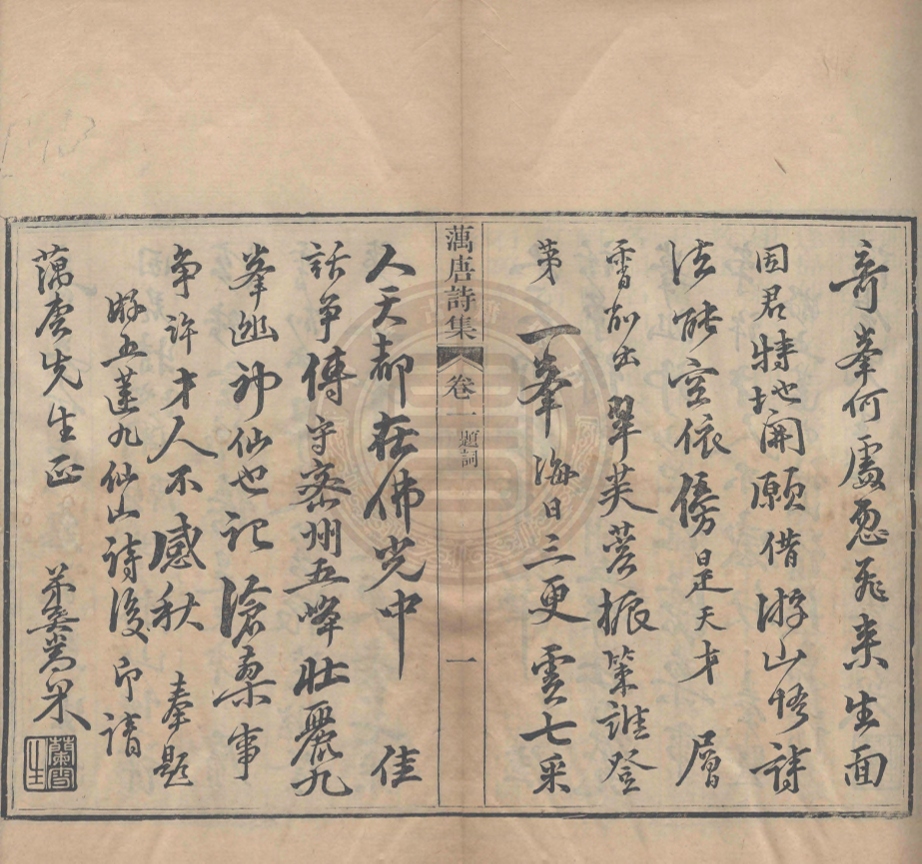 奇峯何處忽飛来生面
因君特地開願借游山悟詩
法能空依傍是天才　層
霄削出翠芙蓉振策誰登
第一峯海日三更雲七采
萬唐詩集
卷一
題詞
一
人天都在佛光中　佳
話争傳宇密州五峰壯麗九
峯幽神仙也記滄桑事
争許才人不感秋　奉題
游五蓮九仙山詩後即請
萬唐先生正